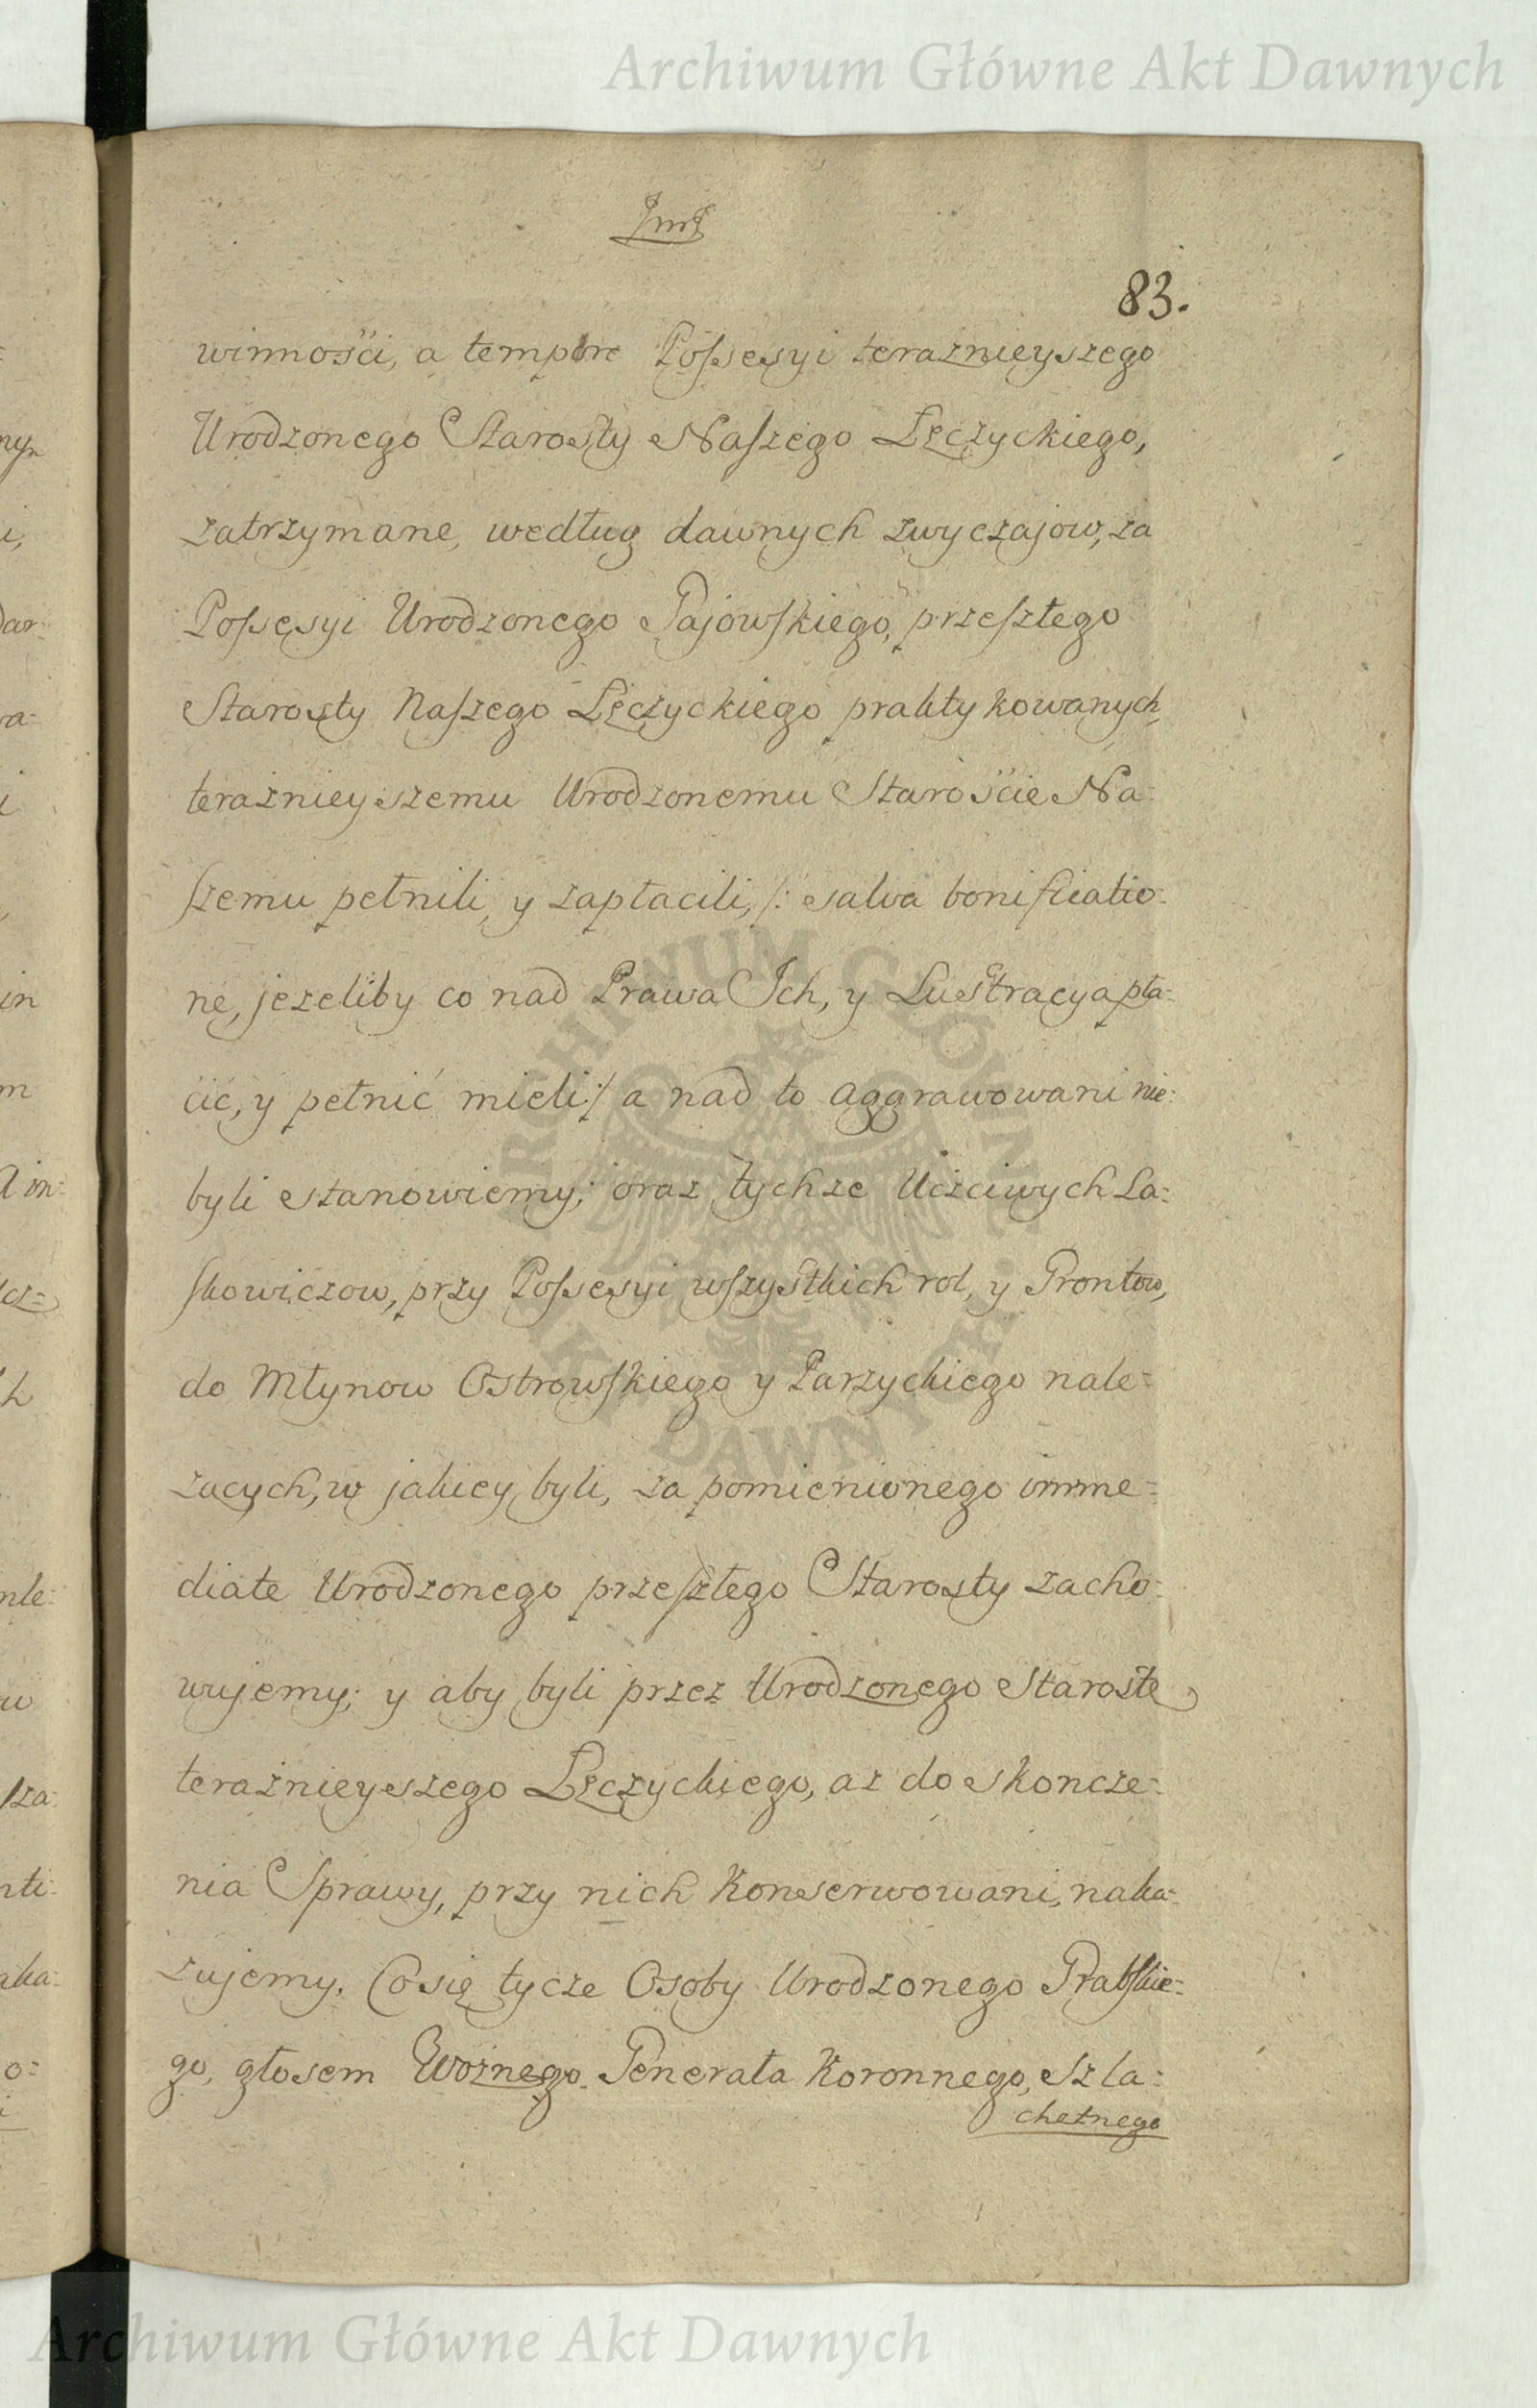 Archiwum Główne Akt Dawnych
83.
winności, a tempore Possesyi teraznieyszego
Urodzonego Starosty Naszego Łęczyckiego,
zatrzymane, według dawnych zwyczajow, za
Possesyi Urodzonego Gajowskiego, przeszłego
Starosty Naszego Łęczyckiego praktykowanych,
teraznieyszemu Urodzonemu Staroście Na=
szemu pełnili, y zapłacili, /: salva bonificatio=
ne, jezeliby co nad Prawa Ich, y Lustracyą pła=
cić, y pełnić mieli :/ a nad to aggrawowani nie=
byli stanowiemy; oraz tychze Uczciwych La=
skowiczow, przy Possesyi wszystkich rol, y Grontow,
do Młynow Ostrowskiego y Parzyckiego nale=
zących, w jakiey byli, za pomienionego imme=
diate Urodzonego przeszłego Starosty zacho=
wujemy; y aby byli przez Urodzonego Starostę
teraznieyszego Łęczyckiego, az do skoncze=
nia Sprawy, przy nich konserwowani, naka=
zujemy. Co się tycze Osoby Urodzonego Grabskie=
go, głosem Woznego Generała Koronnego, Szla=
chetnego
ARCHIWUM GŁÓWNE AKT DAWNYCH
Archiwum Główne Akt Dawnych